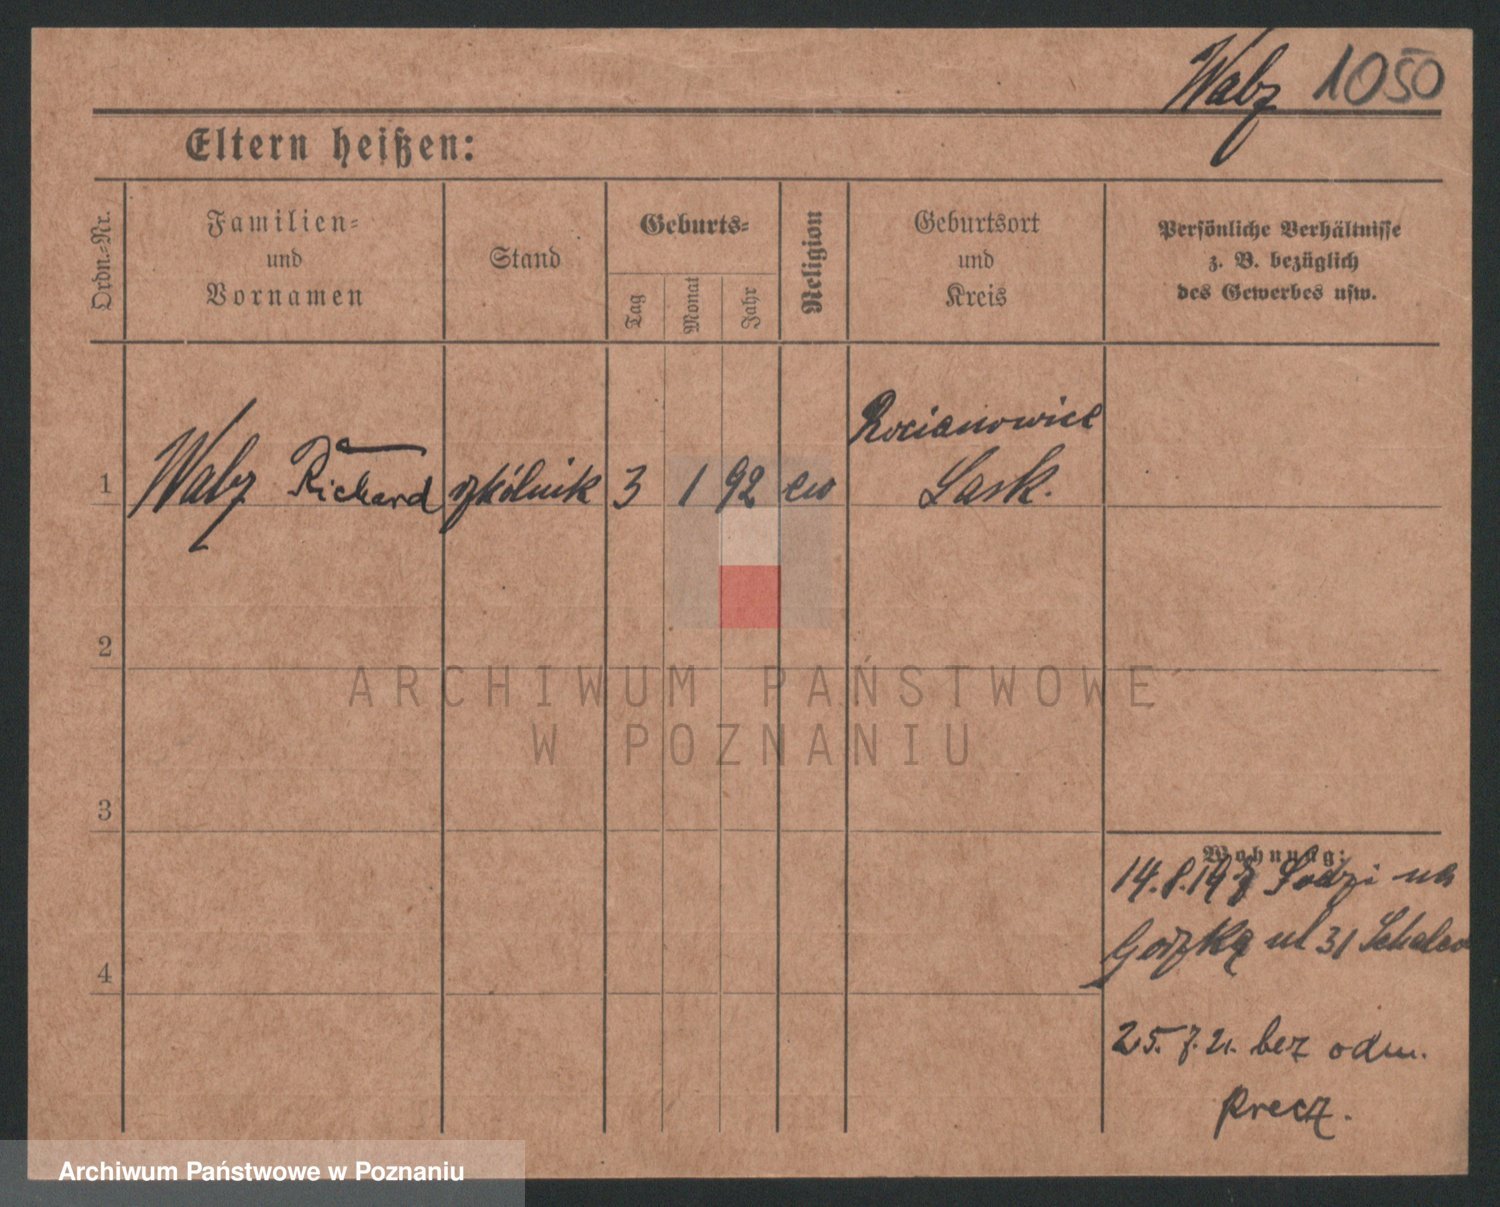 Wabz 1050
Eltern heißen:
Ordn.-Nr.
Familien-
und
Vornamen
Stand
Geburts-
Tag
Monat
Jahr
Religion
Geburtsort
und
Kreis
Persönliche Verhältnisse
z. B. bezüglich
des Gewerbes usw.
1 Wabz Richard szkólnik 3 1 92 ew
Lask.
2
3
4
Wohnung:
14.8. Lodzi na
ul 31
25.7.21. bez odm.
precz.
ARCHIWUM PAŃSTWOWE
W POZNANIU
Archiwum Państwowe w Poznaniu